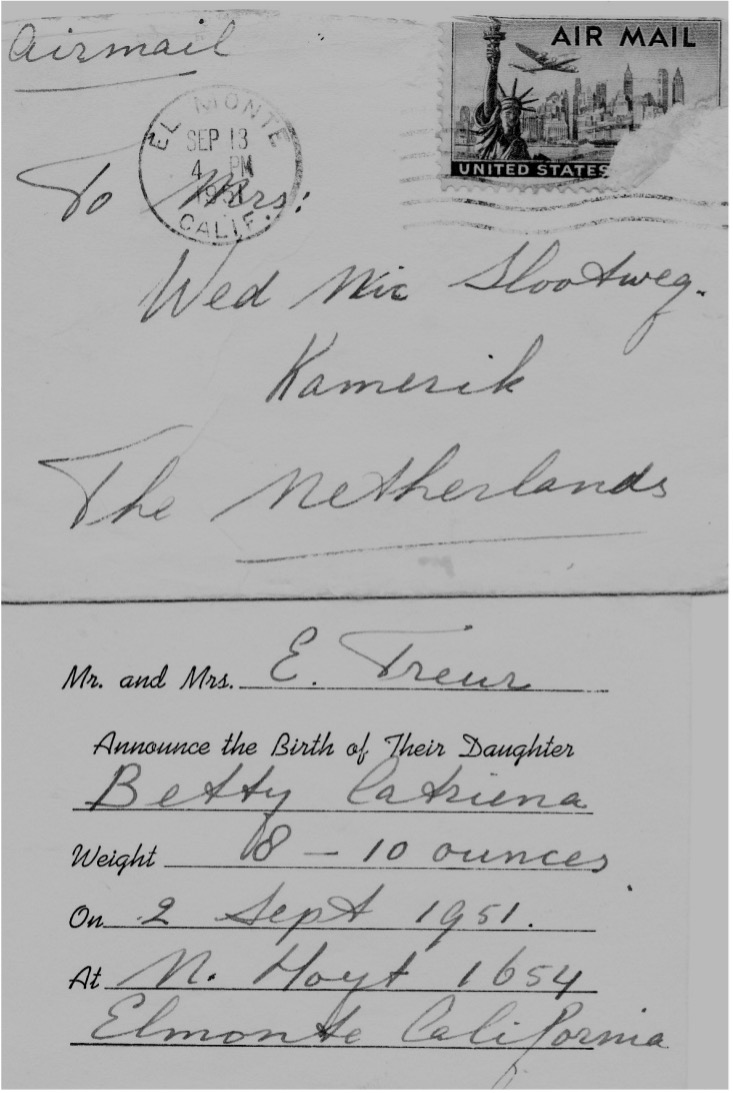 Airmail
AIR MAIL
UNITED STATES
EL MONTE
SEP 13
4 PM
1951
CALIF.
To Mrs:
Wed Nic Slootweg.
Kamerik
The Netherlands
Mr. and Mrs. E. Treur
Announce the Birth of Their Daughter
Betty Catriena
Weight 8 – 10 ounces
On 2 Sept 1951.
At N. Hoyt 1654
Elmonte California